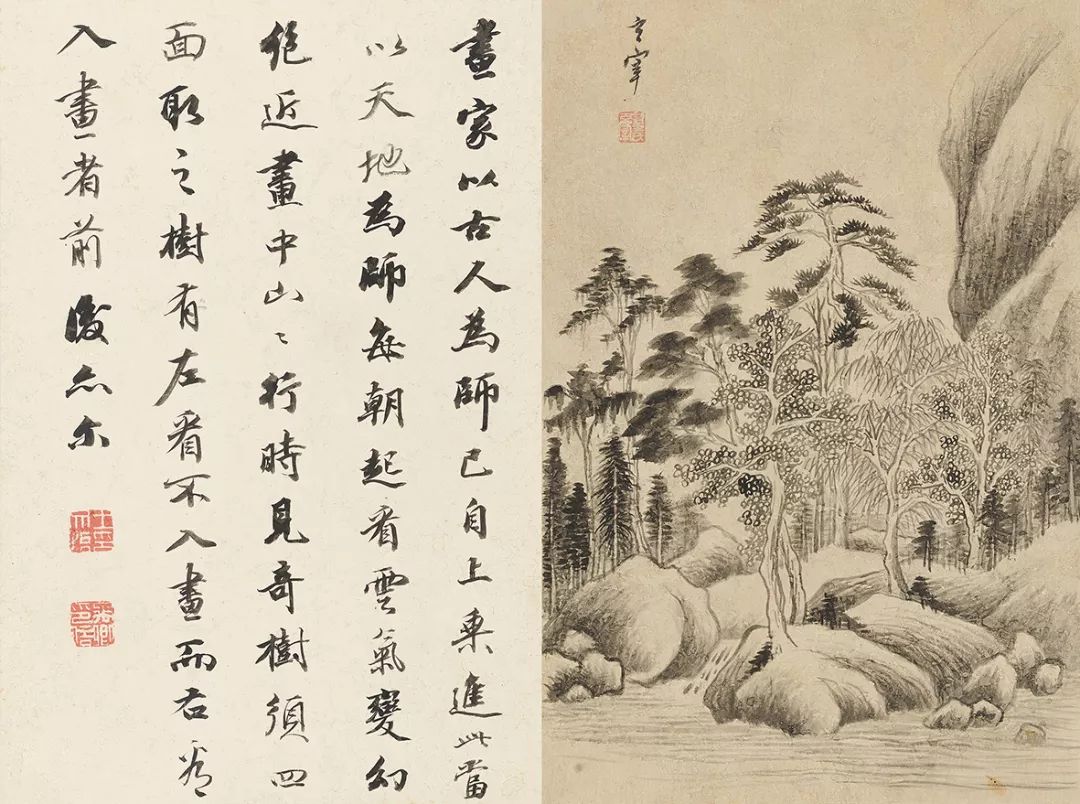 畫家以古人為師已自上乘進此當
以天地為師每朝起看雲氣變幻
絕近畫中山〻行時見奇樹須四
面取之樹有左看不入畫而右看
入畫者前後亦爾
玄宰